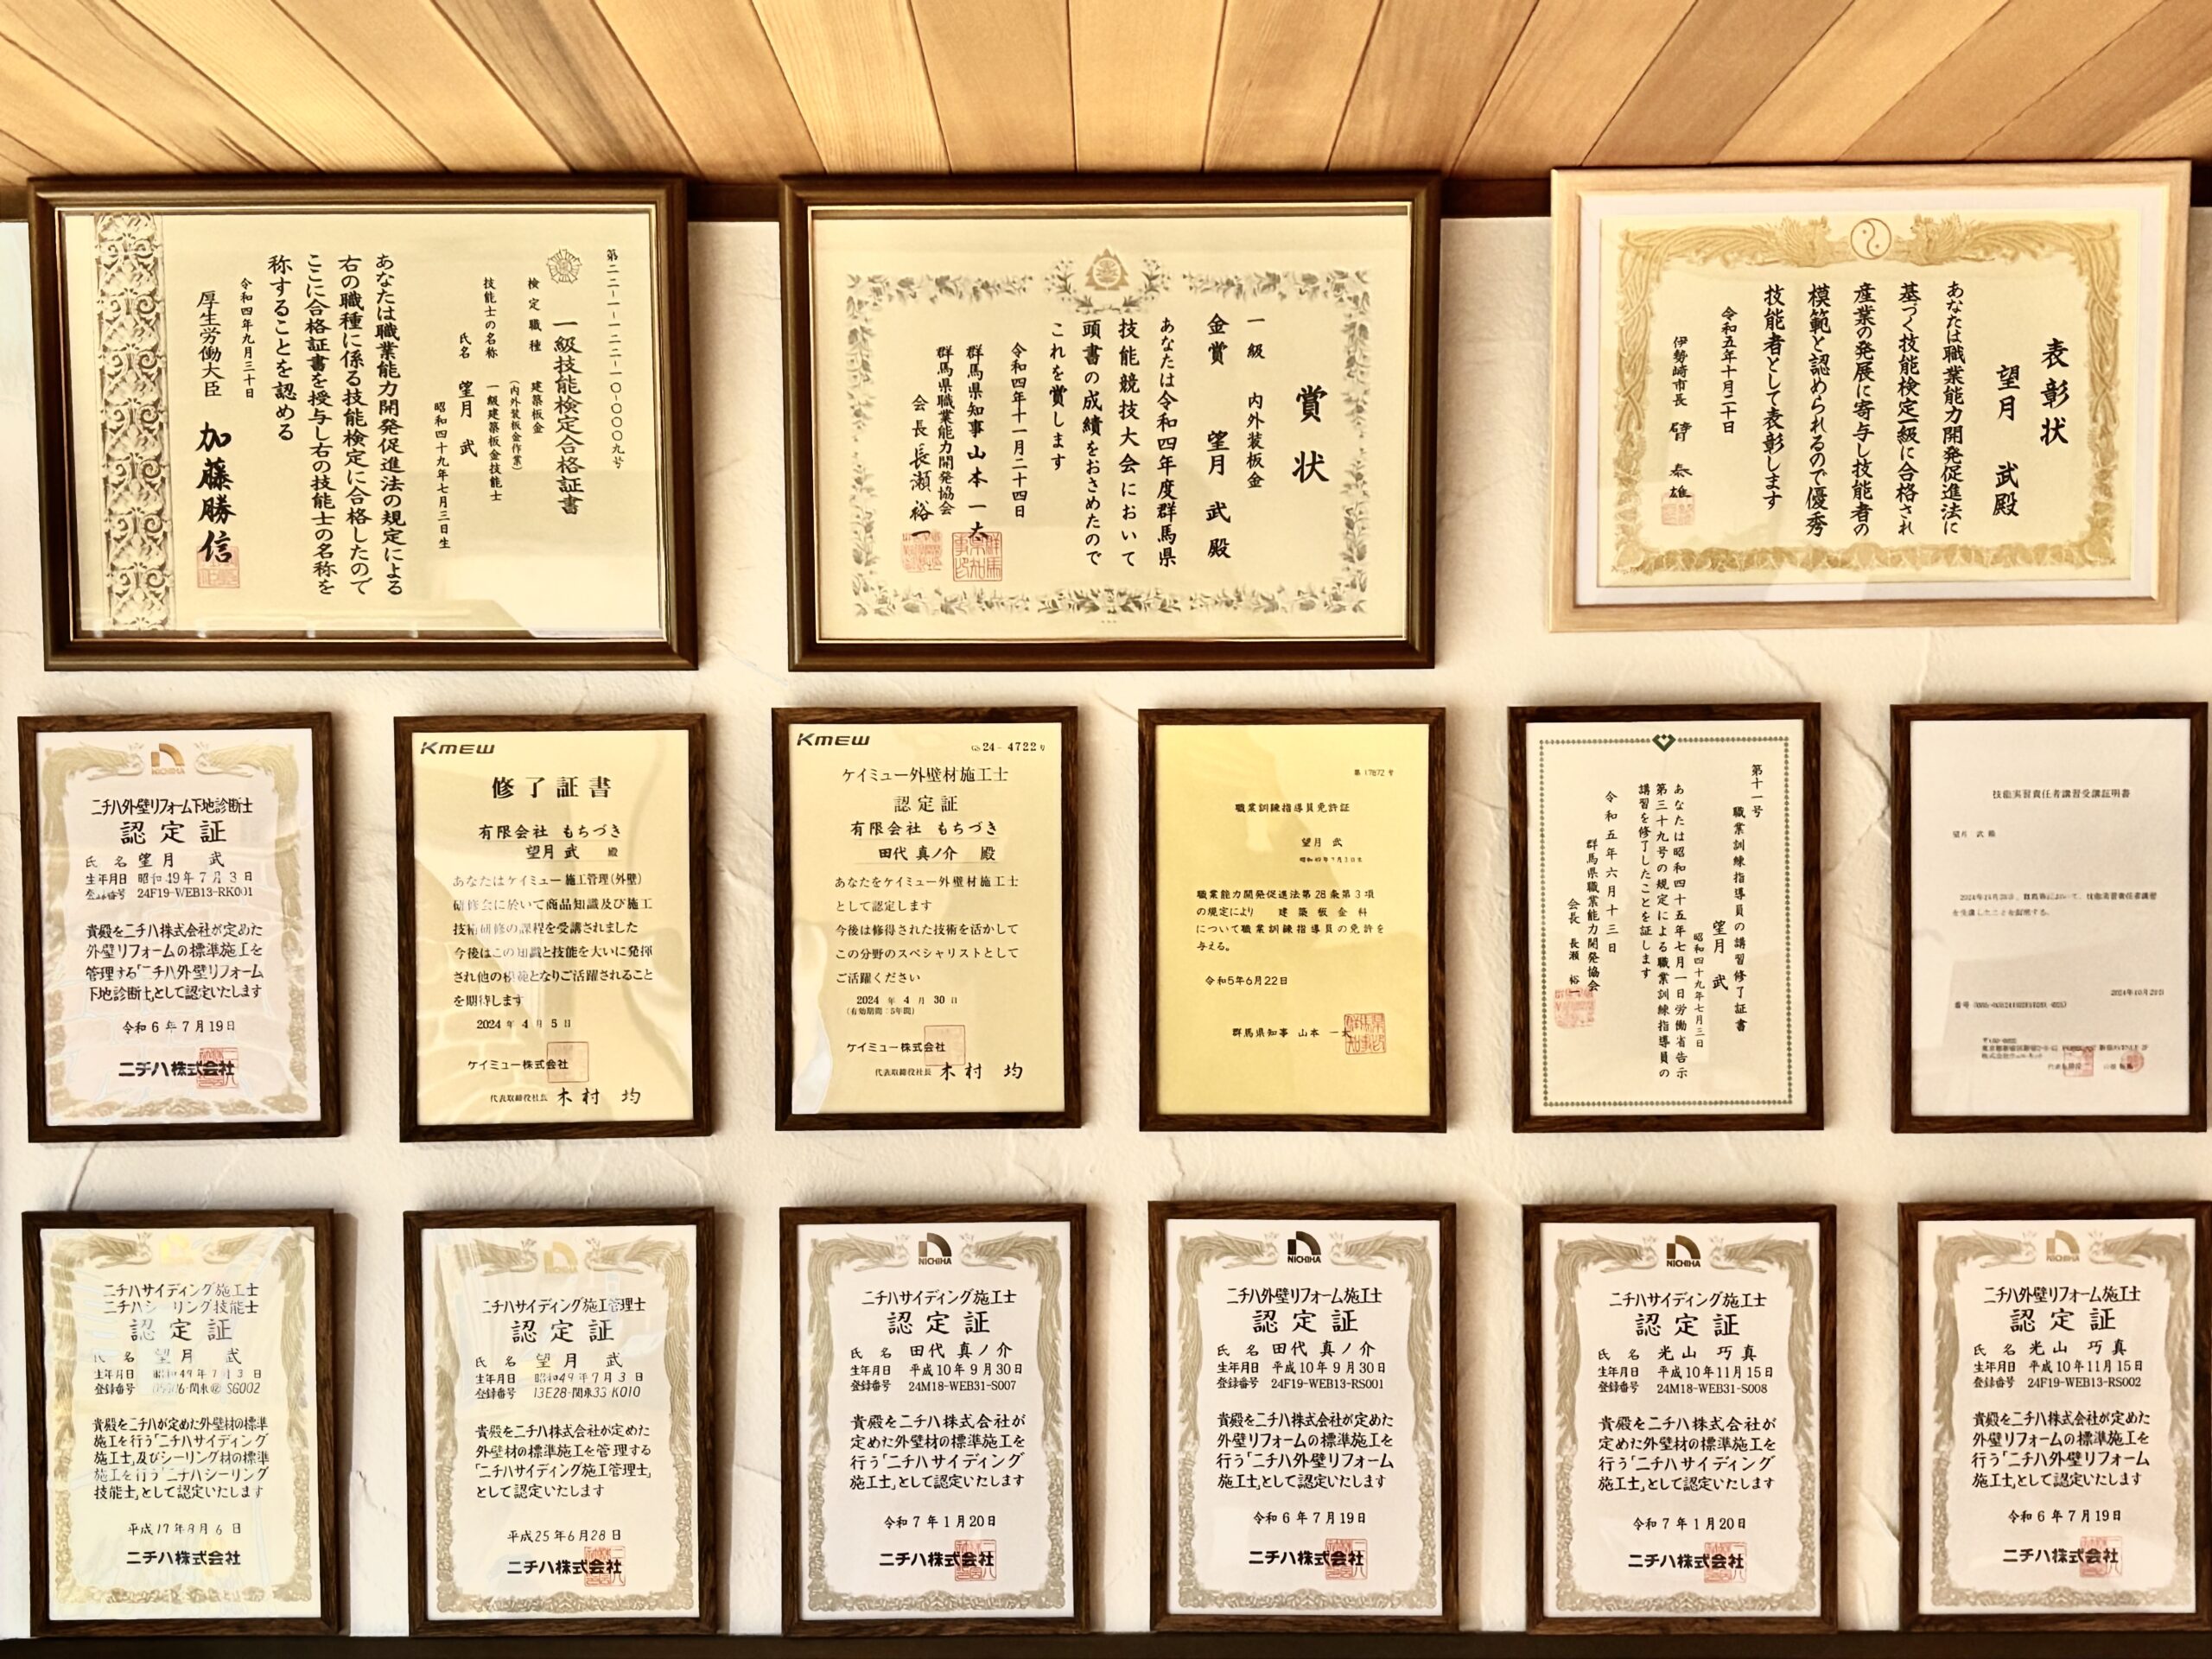 第二二-一-一二二-一〇-〇〇〇九号
一級技能検定合格証書
検定職種 建築板金
（内外装板金作業）
技能士の名称 一級建築板金技能士
氏名 望月 武
昭和四十九年七月三日生
あなたは職業能力開発促進法の規定による
右の職種に係る技能検定に合格したので
ここに合格証書を授与し右の技能士の名称を
称することを認める
令和四年九月三十日
厚生労働大臣 加藤勝信
賞状
一級 内外装板金
金賞 望月 武 殿
あなたは令和四年度群馬県
技能競技大会において
頭書の成績をおさめたので
これを賞します
令和四年十一月二十四日
群馬県知事 山本 一太
群馬県職業能力開発協会
会長 長瀬 裕一
表彰状
望月 武殿
あなたは職業能力開発促進法に
基づく技能検定一級に合格され
産業の発展に寄与し技能者の
模範と認められるので優秀
技能者として表彰します
令和五年十月二十日
伊勢崎市長 臂 泰雄
NICHIHA
ニチハ外壁リフォーム下地診断士
認定証
氏名 望月 武
生年月日 昭和49年7月3日
登録番号 24F19-WEB13-RK001
貴殿をニチハ株式会社が定めた
外壁リフォームの標準施工を
管理する「ニチハ外壁リフォーム
下地診断士」として認定いたします
令和6年7月19日
ニチハ株式会社
KMEW
修了証書
有限会社 もちづき
望月 武 殿
あなたはケイミュー施工管理(外壁)
研修会に於いて商品知識及び施工
技術研修の課程を受講されました
今後はこの知識と技能を大いに発揮
され他の模範となりご活躍されること
を期待します
2024年4月5日
ケイミュー株式会社
代表取締役社長 木村 均
KMEW
24-4722号
ケイミュー外壁材施工士
認定証
有限会社 もちづき
田代 真ノ介 殿
あなたをケイミュー外壁材施工士
として認定します
今後は修得された技術を活かして
この分野のスペシャリストとして
ご活躍ください
2024年4月30日
(有効期間:5年間)
ケイミュー株式会社
代表取締役社長 木村 均
第17872号
職業訓練指導員免許証
望月 武
昭和49年7月3日生
職業能力開発促進法第28条第3項
の規定により 建築板金科
について職業訓練指導員の免許を
与える。
令和5年6月22日
群馬県知事 山本 一太
第十一号
職業訓練指導員の講習修了証書
望月 武
昭和四十九年七月三日
あなたは昭和四十五年七月一日労働省告示
第三十九号の規定による職業訓練指導員の
講習を修了したことを証します
令和五年六月十三日
群馬県職業能力開発協会
会長 長瀬 裕一
技能実習責任者講習受講証明書
望月 武 殿
を受講したことを証明する。
2024年10月29日
ニチハサイディング施工士
ニチハシーリング技能士
認定証
氏名 望月 武
生年月日 昭和49年7月3日
登録番号
貴殿をニチハが定めた外壁材の標準
施工を行う「ニチハサイディング
施工士」及びシーリング材の標準
施工を行う「ニチハシーリング
技能士」として認定いたします
平成17年8月6日
ニチハ株式会社
ニチハサイディング施工管理士
認定証
氏名 望月 武
生年月日 昭和49年7月3日
登録番号 13E28-関東33-K010
貴殿をニチハ株式会社が定めた
外壁材の標準施工を管理する
「ニチハサイディング施工管理士」
として認定いたします
平成25年6月28日
ニチハ株式会社
NICHIHA
ニチハサイディング施工士
認定証
氏名 田代 真ノ介
生年月日 平成10年9月30日
登録番号 24M18-WEB31-S007
貴殿をニチハ株式会社が
定めた外壁材の標準施工を
行う「ニチハサイディング
施工士」として認定いたします
令和7年1月20日
ニチハ株式会社
NICHIHA
ニチハ外壁リフォーム施工士
認定証
氏名 田代 真ノ介
生年月日 平成10年9月30日
登録番号 24F19-WEB13-RS001
貴殿をニチハ株式会社が定めた
外壁リフォームの標準施工を
行う「ニチハ外壁リフォーム
施工士」として認定いたします
令和6年7月19日
ニチハ株式会社
NICHIHA
ニチハサイディング施工士
認定証
氏名 光山 巧真
生年月日 平成10年11月15日
登録番号 24M18-WEB31-S008
貴殿をニチハ株式会社が
定めた外壁材の標準施工を
行う「ニチハサイディング
施工士」として認定いたします
令和7年1月20日
ニチハ株式会社
NICHIHA
ニチハ外壁リフォーム施工士
認定証
氏名 光山 巧真
生年月日 平成10年11月15日
登録番号 24F19-WEB13-RS002
貴殿をニチハ株式会社が定めた
外壁リフォームの標準施工を
行う「ニチハ外壁リフォーム
施工士」として認定いたします
令和6年7月19日
ニチハ株式会社